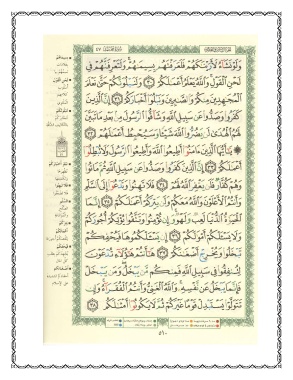 وَلَوْ نَشَاءُ لَأَرَيْنَاكَهُمْ فَلَعَرَفْتَهُم بِسِيمَاهُمْ وَلَتَعْرِفَنَّهُمْ فِي
لَحْنِ الْقَوْلِ وَاللَّهُ يَعْلَمُ أَعْمَالَكُمْ ٣٠ وَلَنَبْلُوَنَّكُمْ حَتَّى نَعْلَمَ
الْمُجَاهِدِينَ مِنكُمْ وَالصَّابِرِينَ وَنَبْلُوَ أَخْبَارَكُمْ ٣١ إِنَّ الَّذِينَ
كَفَرُوا وَصَدُّوا عَن سَبِيلِ اللَّهِ وَشَاقُّوا الرَّسُولَ مِن بَعْدِ مَا تَبَيَّنَ
لَهُمُ الْهُدَى لَن يَضُرُّوا اللَّهَ شَيْئًا وَسَيُحْبِطُ أَعْمَالَهُمْ ٣٢
يَا أَيُّهَا الَّذِينَ آمَنُوا أَطِيعُوا اللَّهَ وَأَطِيعُوا الرَّسُولَ وَلَا تُبْطِلُوا
أَعْمَالَكُمْ ٣٣ إِنَّ الَّذِينَ كَفَرُوا وَصَدُّوا عَن سَبِيلِ اللَّهِ ثُمَّ مَاتُوا
وَهُمْ كُفَّارٌ فَلَن يَغْفِرَ اللَّهُ لَهُمْ ٣٤ فَلَا تَهِنُوا وَتَدْعُوا إِلَى السَّلْمِ
وَأَنتُمُ الْأَعْلَوْنَ وَاللَّهُ مَعَكُمْ وَلَن يَتِرَكُمْ أَعْمَالَكُمْ ٣٥ إِنَّمَا
الْحَيَاةُ الدُّنْيَا لَعِبٌ وَلَهْوٌ وَإِن تُؤْمِنُوا وَتَتَّقُوا يُؤْتِكُمْ أُجُورَكُمْ
وَلَا يَسْأَلْكُمْ أَمْوَالَكُمْ ٣٦ إِن يَسْأَلْكُمُوهَا فَيُحْفِكُمْ
تَبْخَلُوا وَيُخْرِجْ أَضْغَانَكُمْ ٣٧ هَا أَنتُمْ هَؤُلَاءِ تُدْعَوْنَ
لِتُنفِقُوا فِي سَبِيلِ اللَّهِ فَمِنكُم مَّن يَبْخَلُ وَمَن يَبْخَلْ
فَإِنَّمَا يَبْخَلُ عَن نَّفْسِهِ وَاللَّهُ الْغَنِيُّ وَأَنتُمُ الْفُقَرَاءُ وَإِن
تَتَوَلَّوْا يَسْتَبْدِلْ قَوْمًا غَيْرَكُمْ ثُمَّ لَا يَكُونُوا أَمْثَالَكُم ٣٨
٥١٠